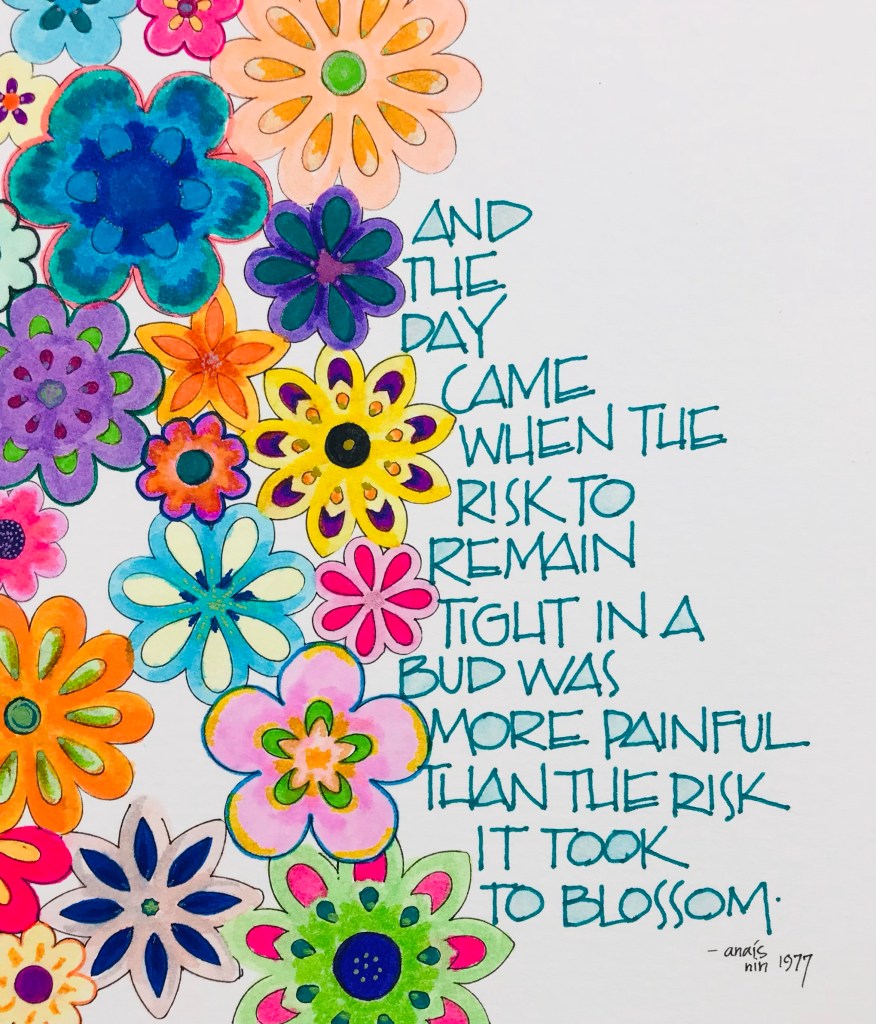 AND
THE
DAY
CAME
WHEN THE
RISK TO
REMAIN
TIGHT IN A
BUD WAS
MORE PAINFUL
THAN THE RISK
IT TOOK
TO BLOSSOM.
- anaïs
nin 1977